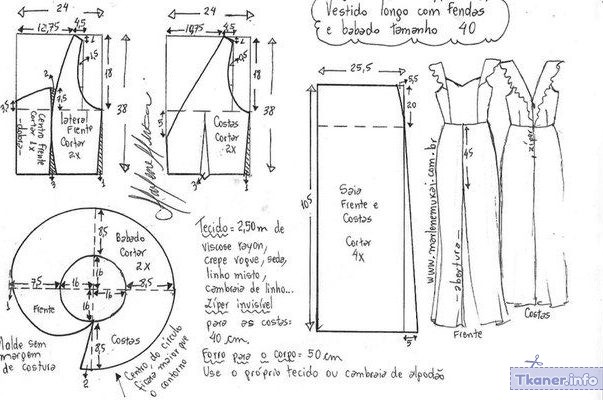 Vestido longo com Fendas
e babado tamanho 40
24
12,75
4,5
1
1,5
18
38
2
7,5
7,5
Centro Frente
Cortar 1x
dobra
lateral
Frente
Cortar
2x
3
24
10,75
4,5
1
0,5
18
38
5
Costas
Cortar
2x
3
1
Marlene Mukai
25,5
5,5
20
105
Saia
Frente e
Costas
Cortar
4x
5
www.marlenemukai.com.br
45
abertura
Frente
zíper
Costas
Babado
Cortar
2X
8,5
16
7,5
16
16
8,5
16
8,5
1
1
2
Frente
Costas
Molde sem
margem
de costura
Centro do círculo
ficará maior que
o contorno
Tecido = 2,50m de
viscose rayon,
crepe voque, seda,
linho misto,
cambraia de linho...
Zíper invisível
para as costas:
40 cm.
Forro para o corpo = 50 cm
Use o próprio tecido ou cambraia de algodão
Tkaner.info